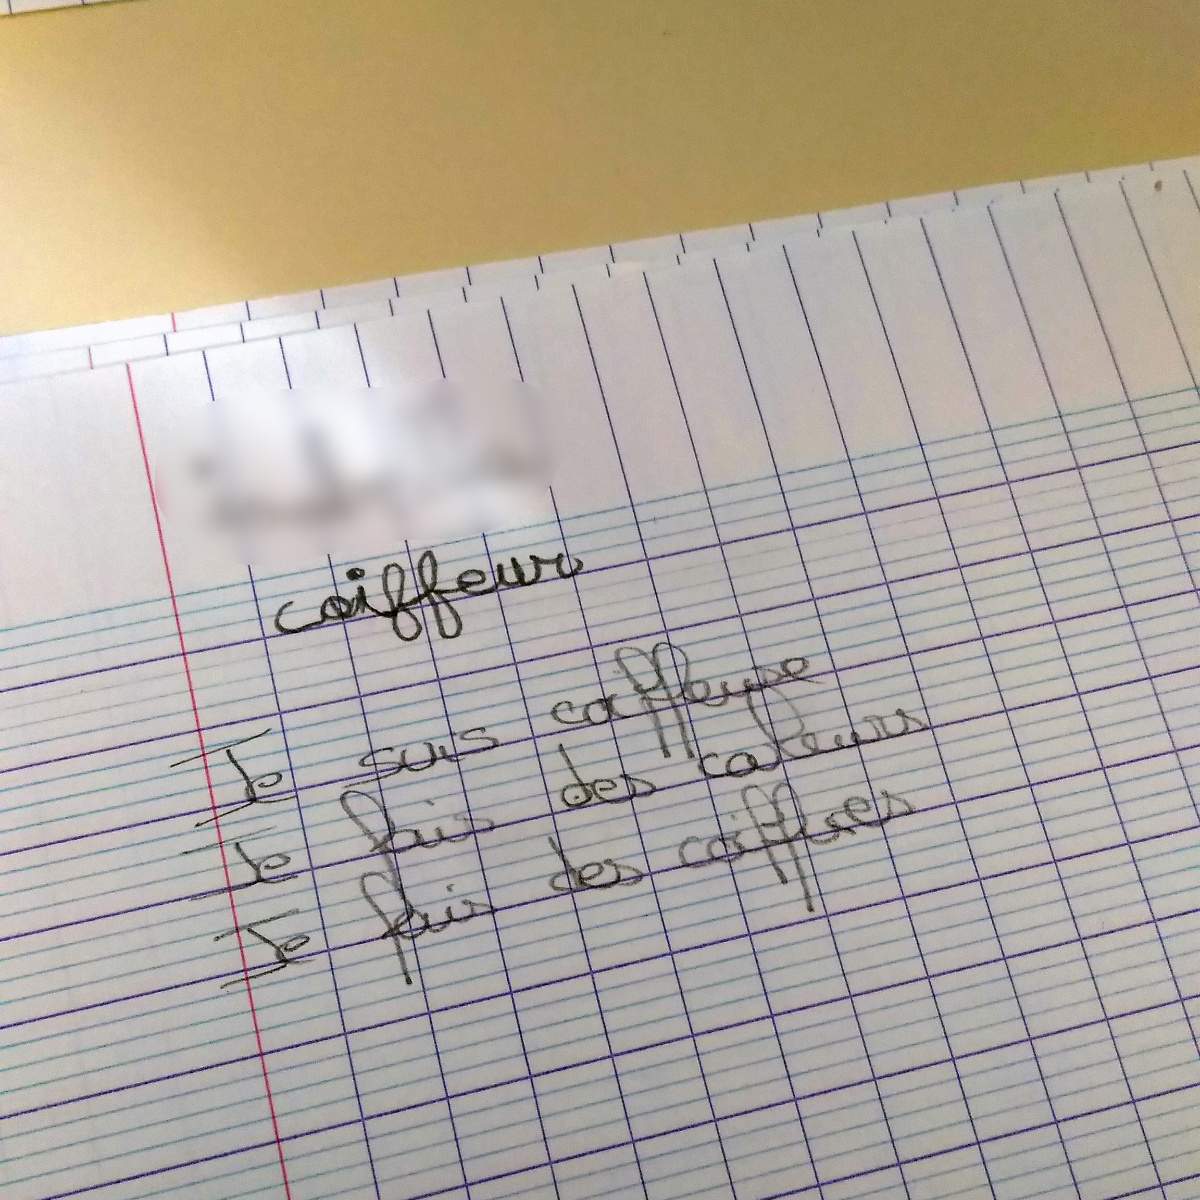 coiffeur
Je suis coiffeuse
Je fais des couleurs
Je fais des coiffures